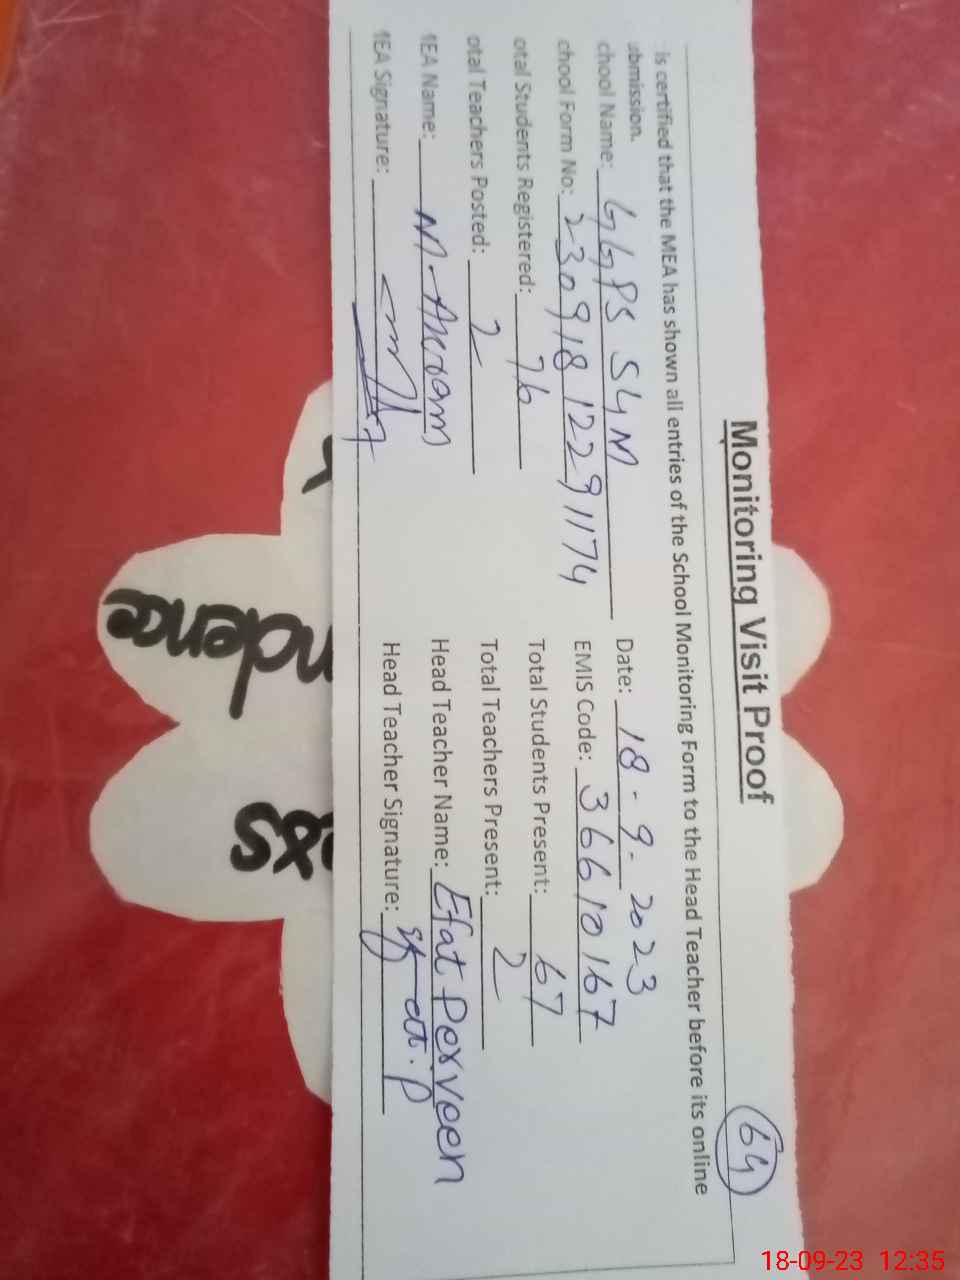 Monitoring Visit Proof
64
is certified that the MEA has shown all entries of the School Monitoring Form to the Head Teacher before its online
ubmission.
chool Name: GGPS 54M Date: 18-9-2023
chool Form No: 23091812291174 EMIS Code: 36610167
otal Students Registered: 76 Total Students Present: 67
otal Teachers Posted: 2 Total Teachers Present: 2
MEA Name: M. Akram Head Teacher Name: Efat Perveen
MEA Signature: Head Teacher Signature: Efat.P
ndence
18-09-23 12:35